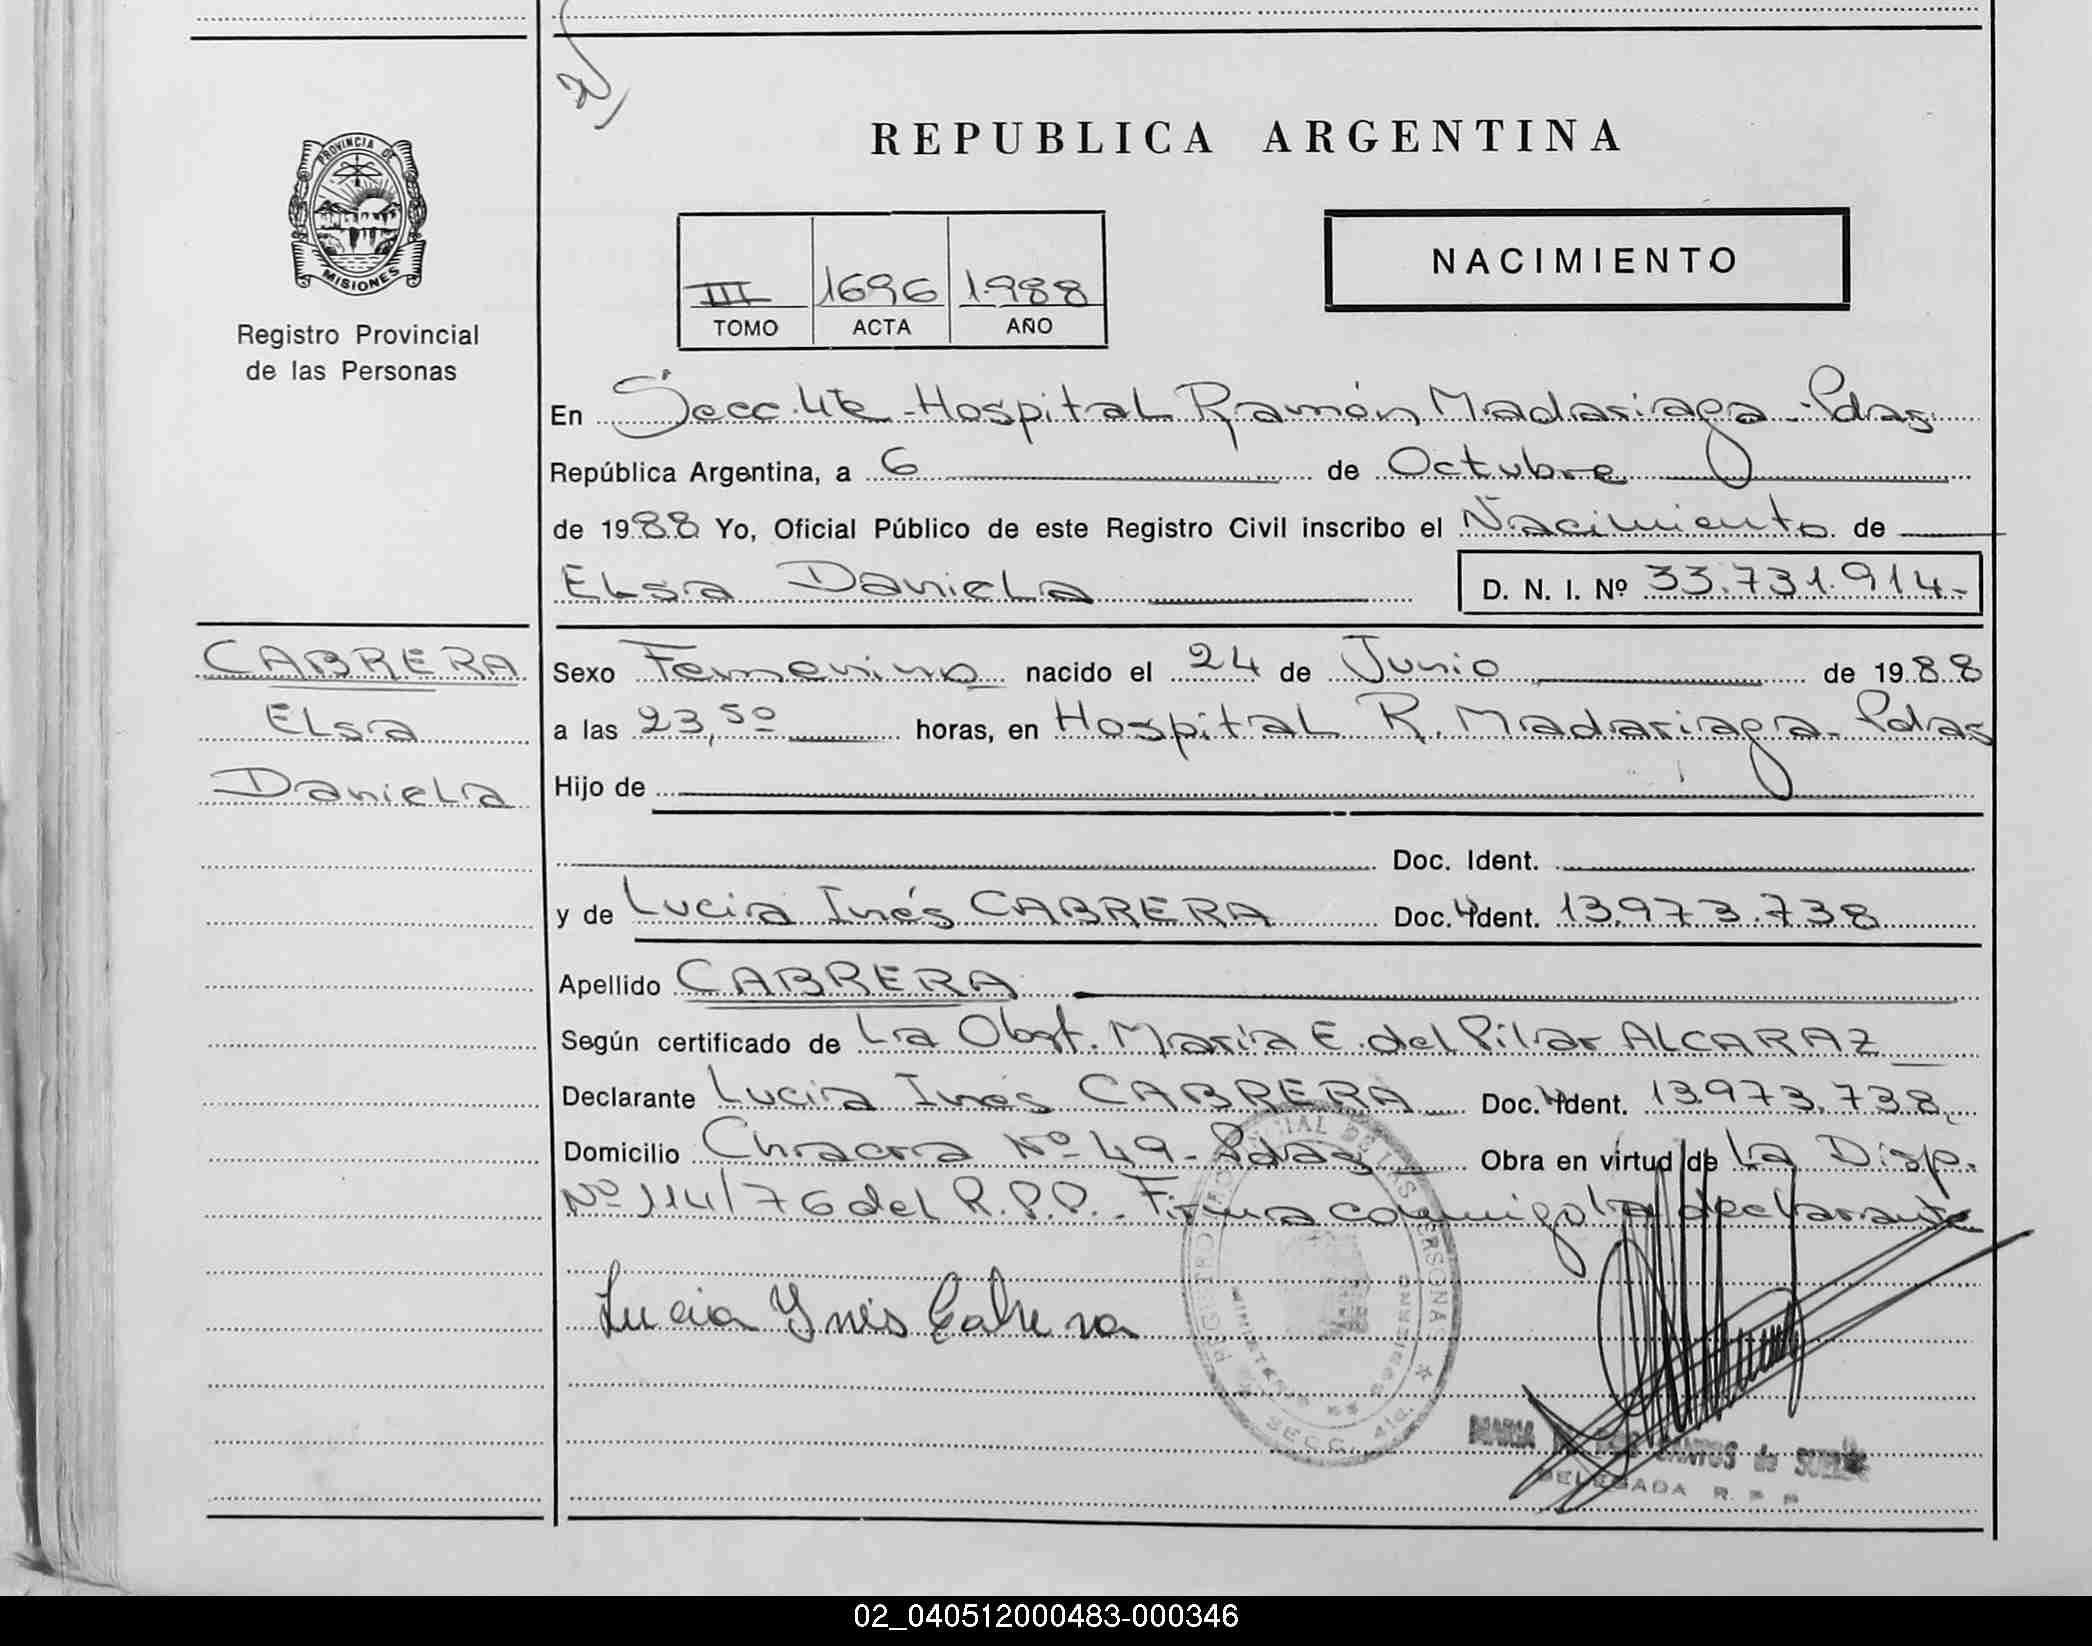 REPUBLICA ARGENTINA
PROVINCIA DE
MISIONES
Registro Provincial
de las Personas
III 1696 1988
TOMO ACTA AÑO
NACIMIENTO
En Secc. 4ta - Hospital Ramón Madariaga - Pdas.
República Argentina, a 6 de Octubre
de 1988 Yo, Oficial Público de este Registro Civil inscribo el Nacimiento de
Elsa Daniela D. N. I. Nº 33.731.914.-
CABRERA
Elsa
Daniela
Sexo Femenino nacido el 24 de Junio de 1988
a las 23,50 horas, en Hospital R. Madariaga - Pdas
Hijo de
Doc. Ident.
y de Lucia Inés CABRERA Doc. Ident. 13.973.738
Apellido CABRERA
Según certificado de La Obst. María E. del Pilar ALCARAZ
Declarante Lucia Inés CABRERA Doc. Ident. 13.973.738
Domicilio Chacra Nº 49 - Pdas Obra en virtud de La Disp.
Nº 114/76 del R.P.P. - Firma conmigo la declarante
Lucia Ynés Cabrera
REGISTRO PROVINCIAL DE LAS PERSONAS
MINISTERIO DE GOBIERNO
SECC. 4ta.
MARIA SANTOS de
DELEGADA R. P. P.
02_040512000483-000346